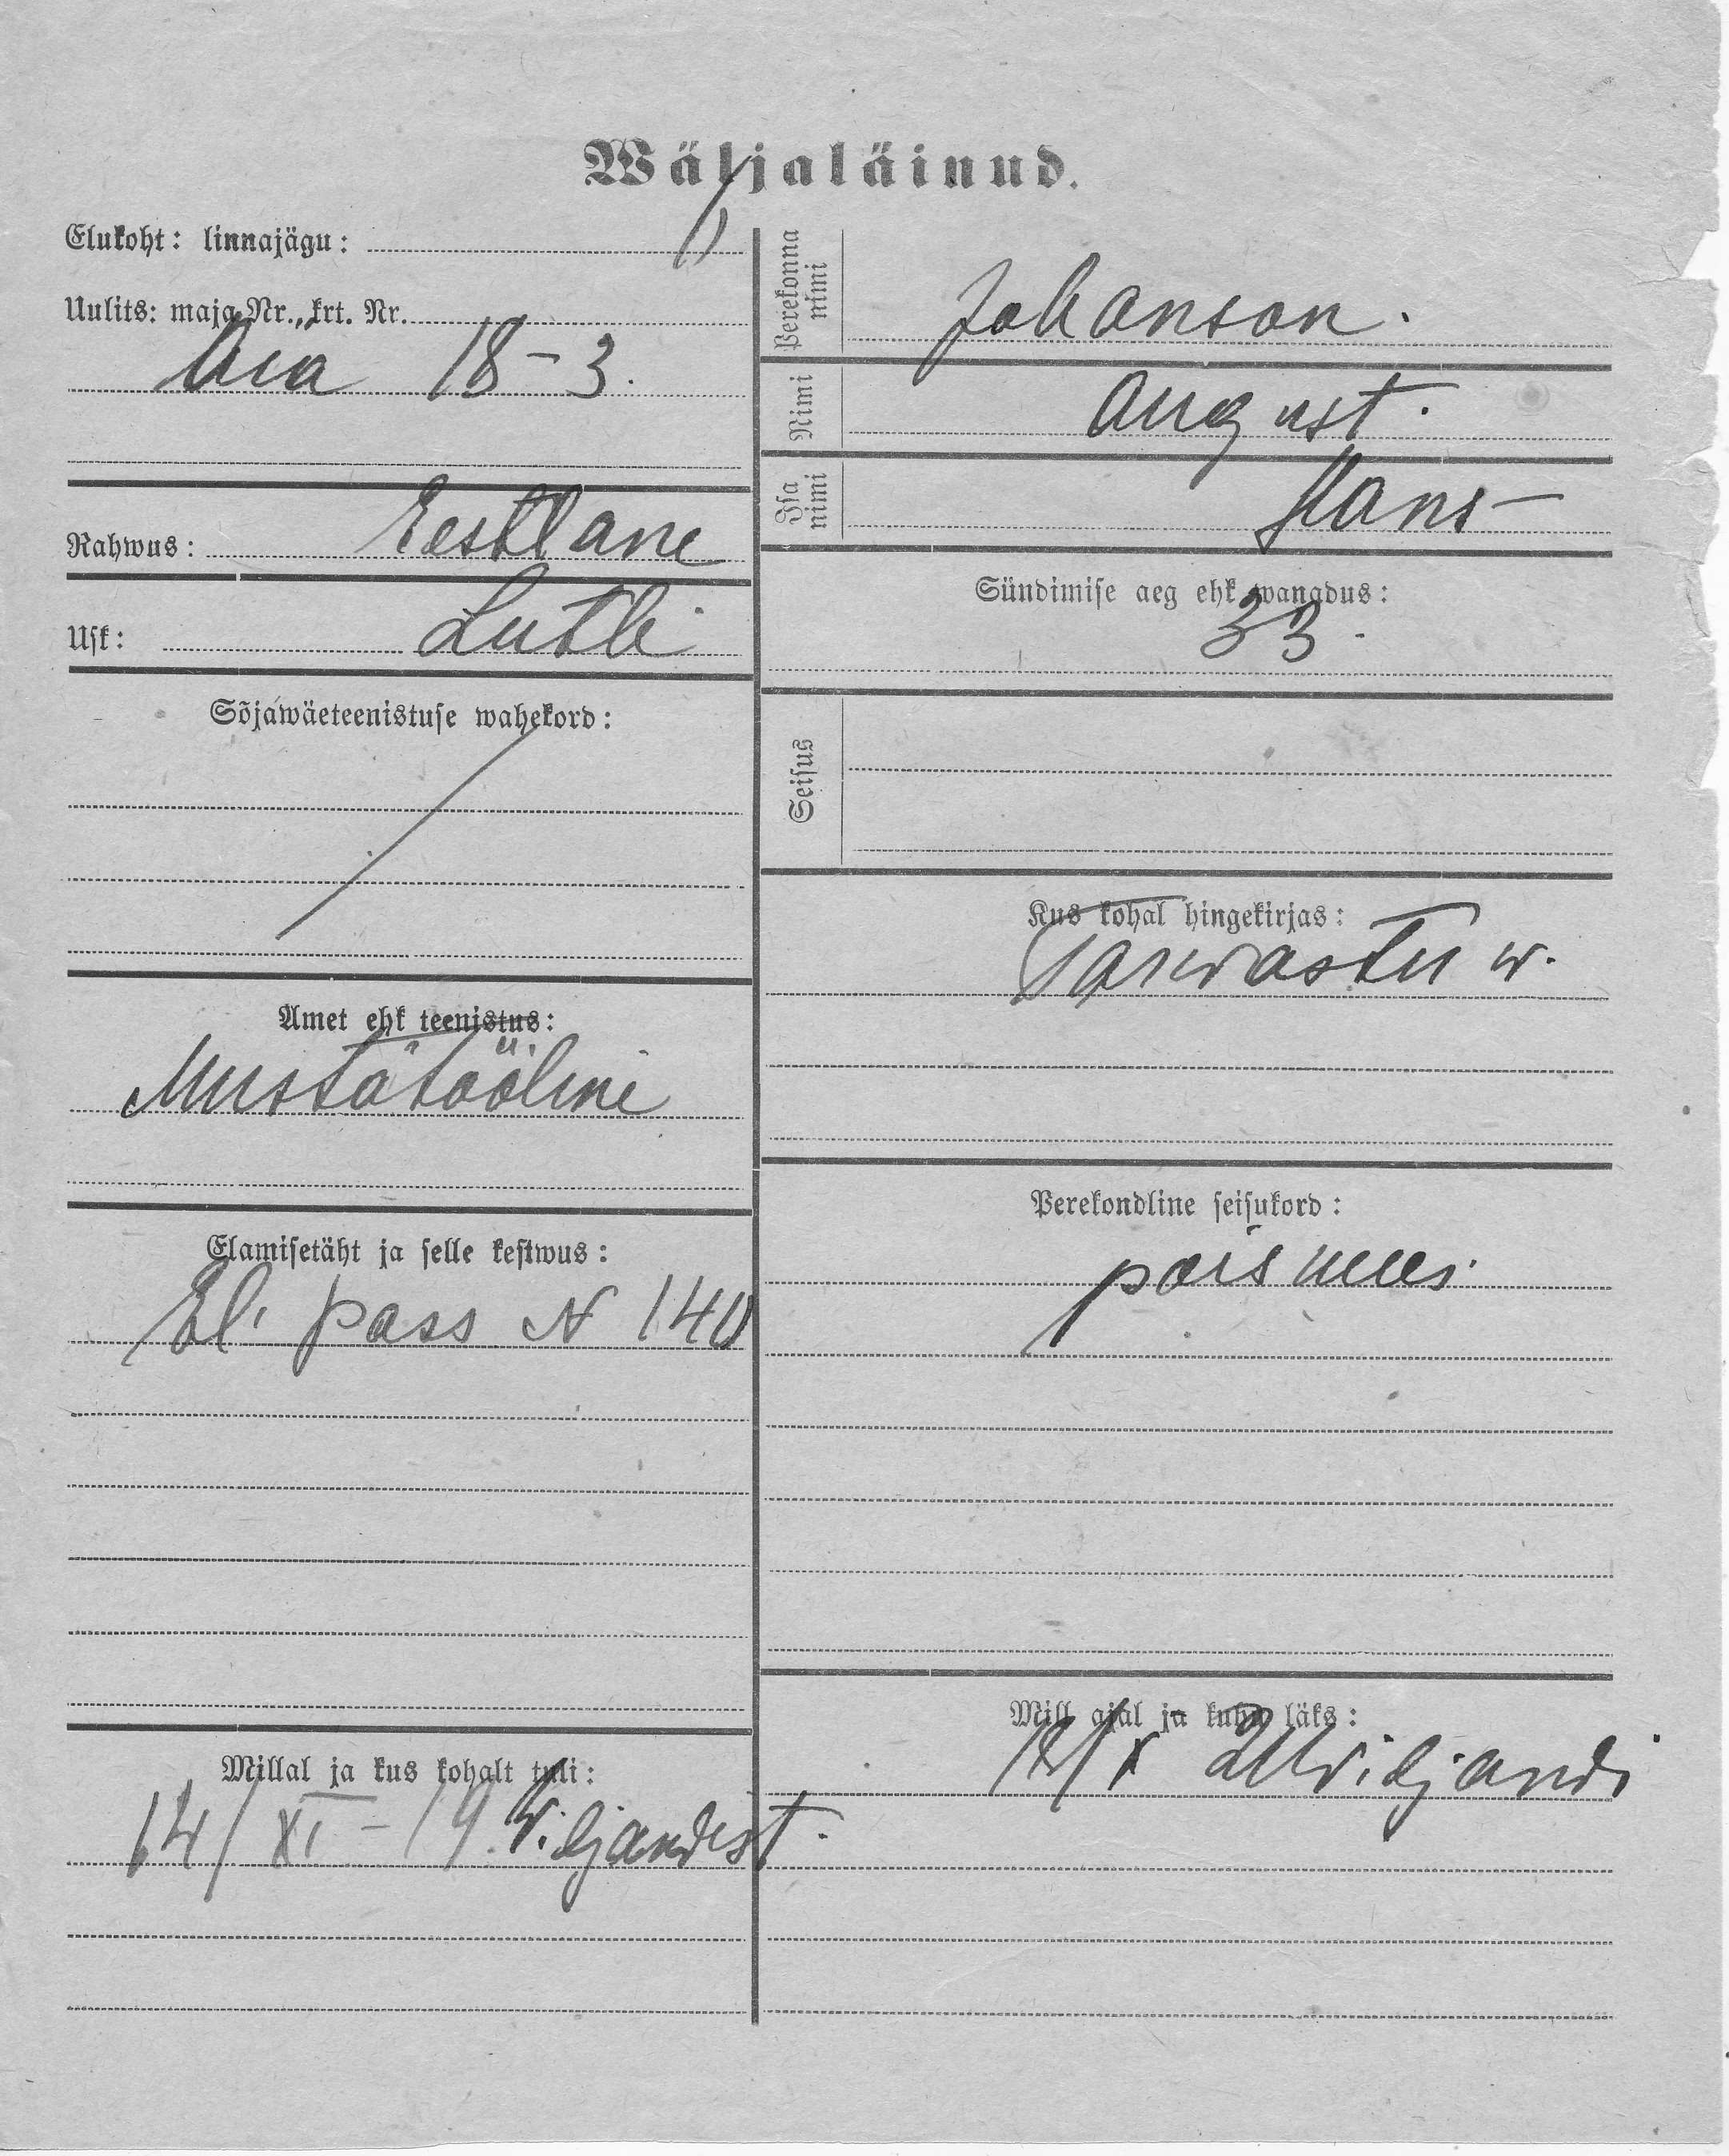 Wäljaläinud.
Elukoht: linnajägu:
II
Uulits: maja Nr., krt. Nr.
Aia 18-3.
Rahwus: Eestlane
Usk: Lutli
Sõjawäeteenistuse wahekord:
Amet ehk teenistus:
Mustatööline
Elamisetäht ja selle kestwus:
El. pass N 140
Millal ja kus kohalt tuli:
14/XI - 19. Wiljandist.
Perekonna nimi
Johanson.
Nimi
August.
Isa nimi
Hans-
Sündimise aeg ehk wanadus:
33.
Seisus
Kus kohal hingekirjas:
Tarwastu w.
Perekondline seisukord:
poismees.
Mill ajal ja kuhu läks:
Wiljandi